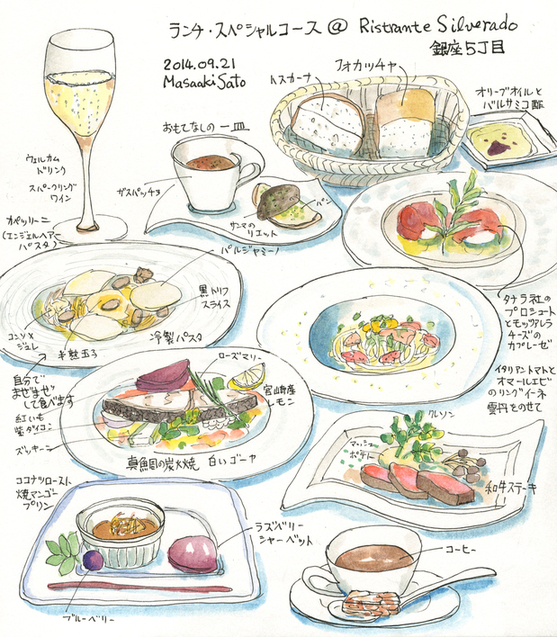 ランチ・スペシャルコース @ Ristrante Silverado
銀座5丁目
2014.09.21
Masaaki Sato
トスカーナ
フォカッチャ
オリーブオイルと
バルサミコ酢
おもてなしの一皿
ウェルカム
ドリンク
スパークリング
ワイン
ガスパッチョ
パン
サンマの
リエット
カペッリーニ
(エンジェルヘアー
パスタ)
パルジャミーノ
黒トリフ
スライス
コンソメ
ジュレ
半熟玉子
冷製パスタ
自分で
まぜまぜ
して食べます
タナラ社の
プロシュート
とモッツァレラ
チーズの
カプレーゼ
イタリアントマトと
オマールエビ
のリングイーネ
雲丹をのせて
ローズマリー
宮崎産
レモン
紅いも
紫ダイコン
ズッキーニ
真魚鯛の炭火焼
白いゴーヤ
クレソン
マッシュ
ポテト
和牛ステーキ
ココナツロースト
焼マンゴー
プリン
ラズベリー
シャーベット
ブルーベリー
コーヒー